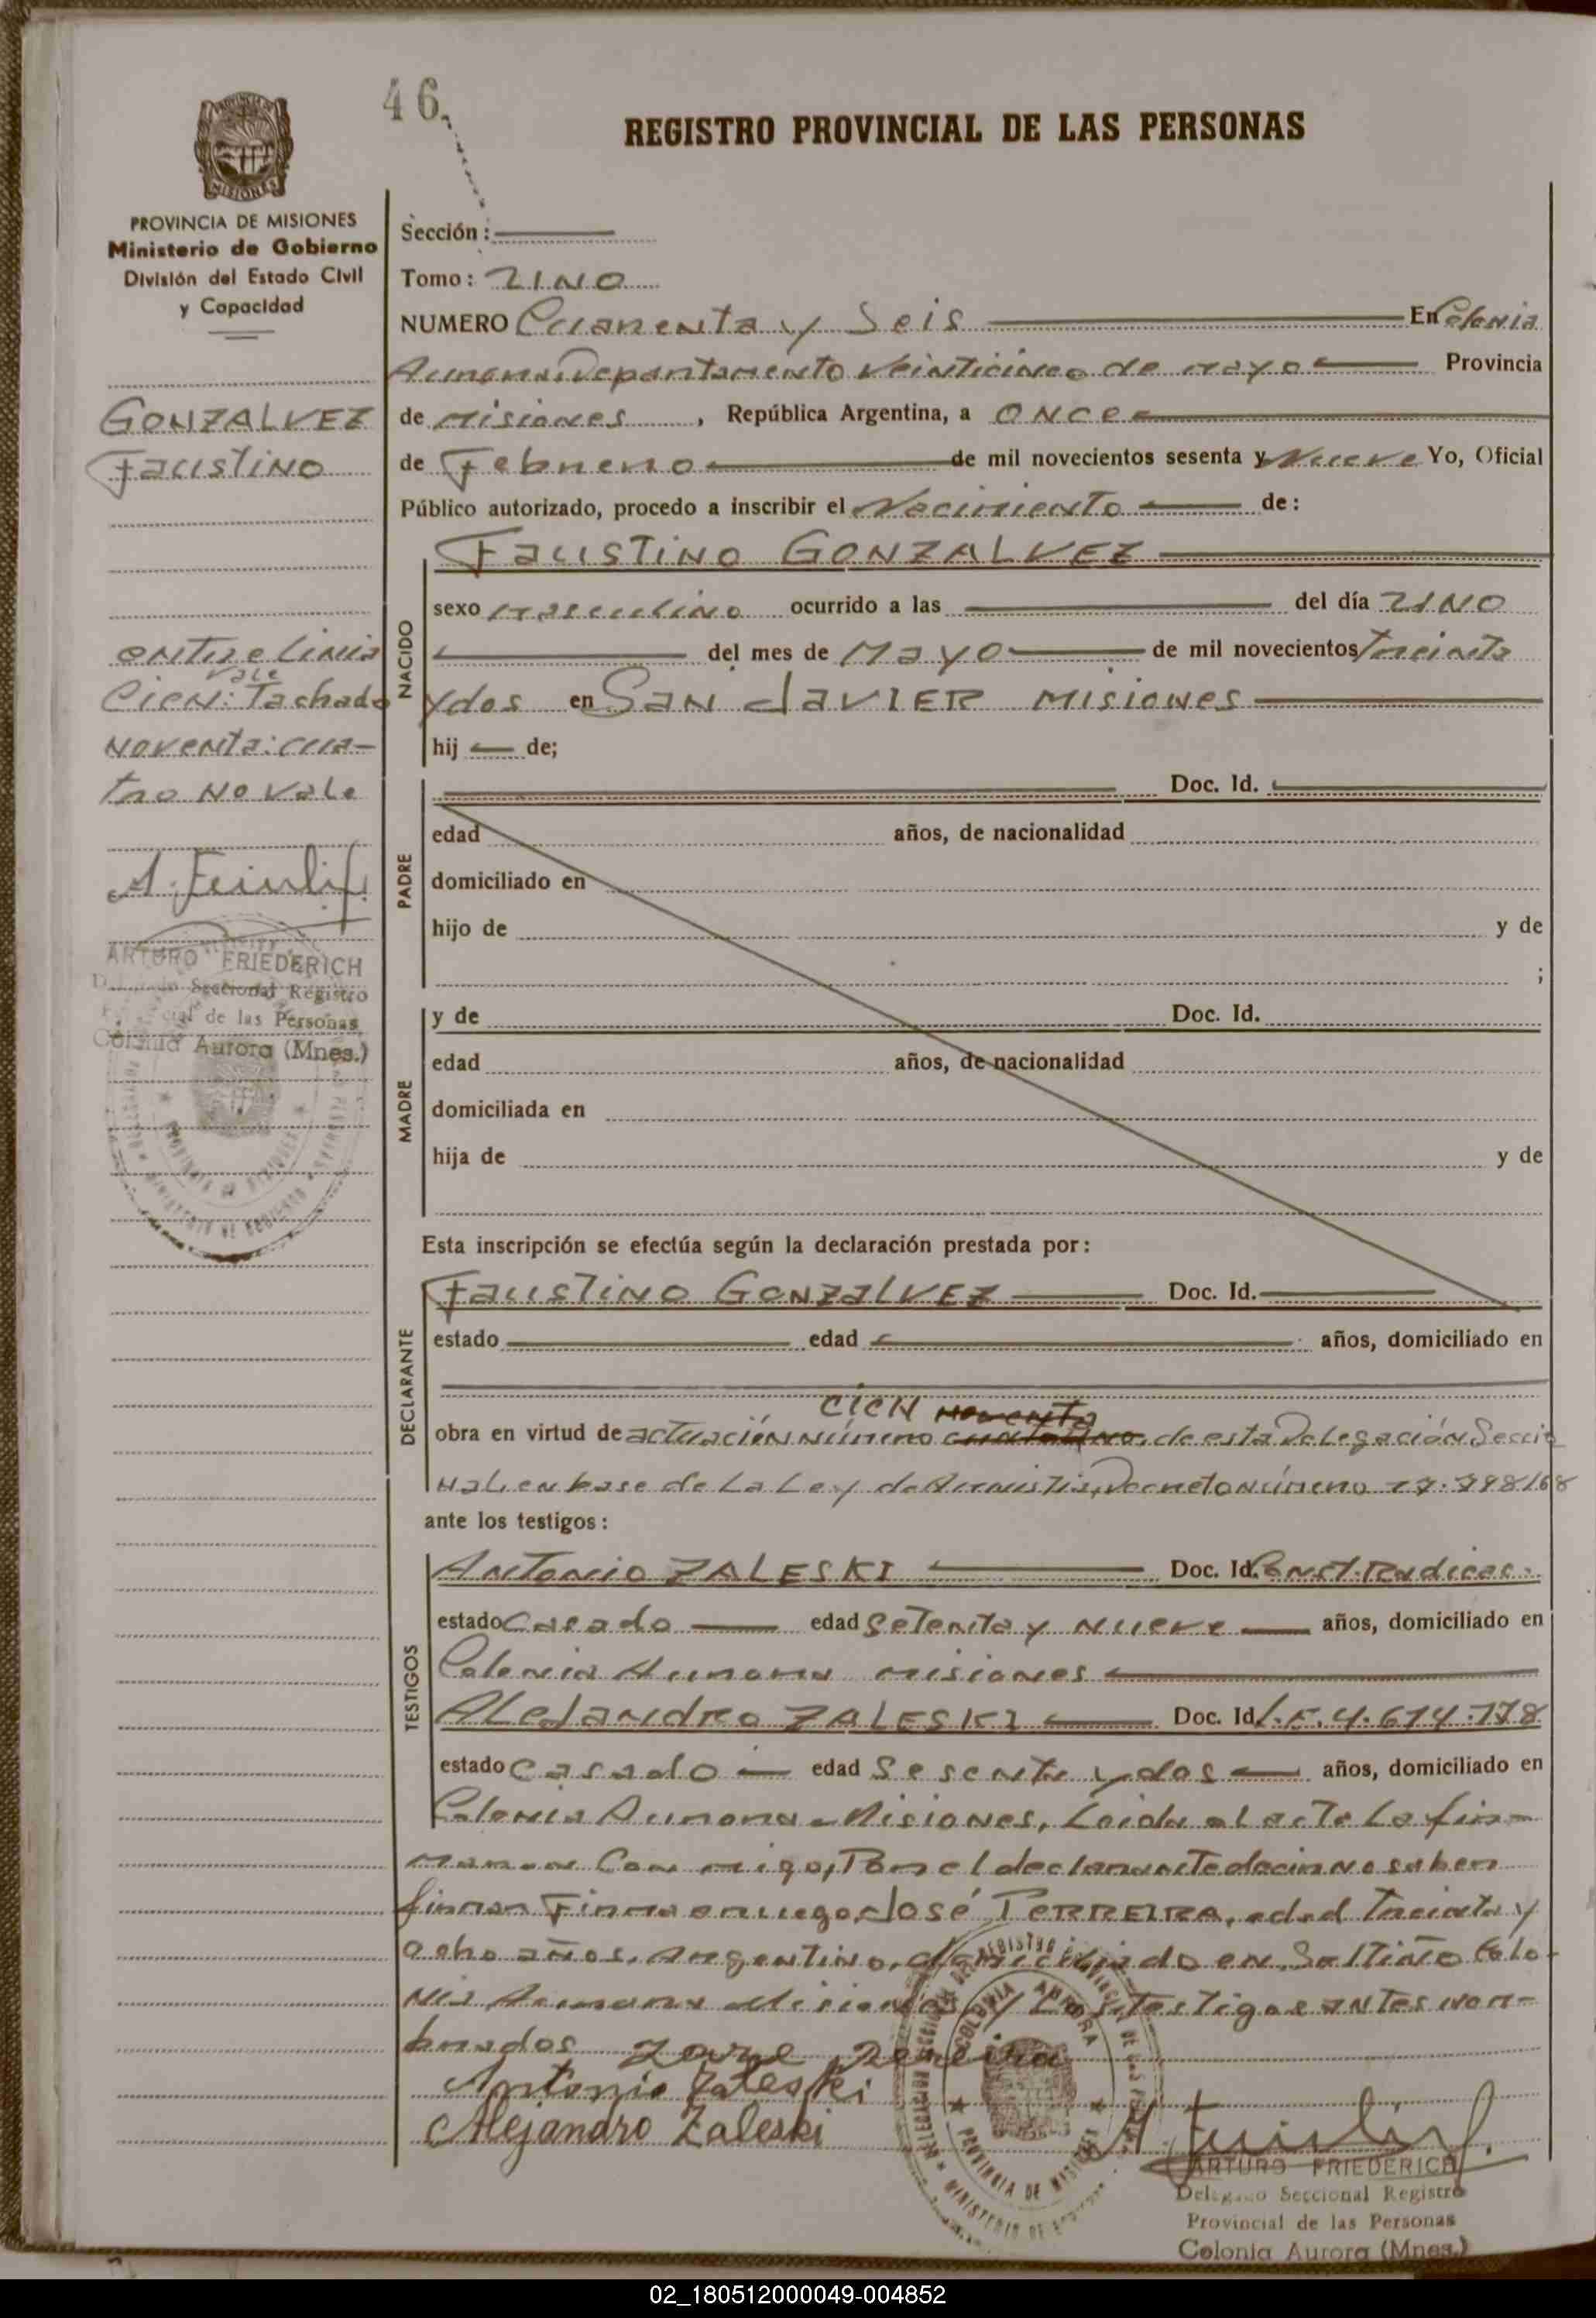 46.
REGISTRO PROVINCIAL DE LAS PERSONAS
PROVINCIA DE MISIONES
Ministerio de Gobierno
División del Estado Civil
y Capacidad
GONZALVEZ
FAUSTINO
entre linia
vale
Cien: Tachado
noventa: cua-
tro no vale
ARTURO FRIEDERICH
Seccional Registro
de las Personas
Colonia Aurora (Mnes.)
Sección:
Tomo: UNO
NUMERO Cuarenta y Seis En Colonia
Aurora, Departamento Veinticinco de mayo Provincia
de misiones, República Argentina, a ONCE
de Febrero de mil novecientos sesenta y Nueve Yo, Oficial
Público autorizado, procedo a inscribir el Nacimiento de:
NACIDO
FAUSTINO GONZALVEZ
sexo masculino ocurrido a las del día UNO
del mes de MAYO de mil novecientos treinta
y dos en SAN JAVIER MISIONES
hij de;
PADRE
Doc. Id.
edad años, de nacionalidad
domiciliado en
hijo de y de
;
MADRE
y de Doc. Id.
edad años, de nacionalidad
domiciliada en
hija de y de
Esta inscripción se efectúa según la declaración prestada por:
DECLARANTE
FAUSTINO GONZALVEZ Doc. Id.
estado edad años, domiciliado en
CIEN noventa
obra en virtud de actuación número cuatro, de esta Delegación Seccio
nal, en base de La Ley de Amnistia, Decreto número 17.798/68
ante los testigos:
TESTIGOS
ANTONIO ZALESKI Doc. Id. Radicac.
estado Casado edad Setenta y Nueve años, domiciliado en
Colonia Aurora misiones
ALEJANDRO ZALESKI Doc. Id L.E. 4.614.178
estado Casado edad Sesenta y dos años, domiciliado en
Colonia Aurora - Misiones, Leida el acta La fir-
man Con migo, Por el declarante decir no saber
firmar Firma a ruego José PERREIRA, edad Treinta y
ocho años, Argentino, domiciliado en Saltiño Colo-
nia Aurora Misiones y Los Testigos antes nom-
brados
Antonio Zaleski
Alejandro Zaleski
COLONIA AURORA
PROVINCIA DE MISIONES
ARTURO FRIEDERICH
Delegado Seccional Registro
Provincial de las Personas
Colonia Aurora (Mnes.)
02_180512000049-004852